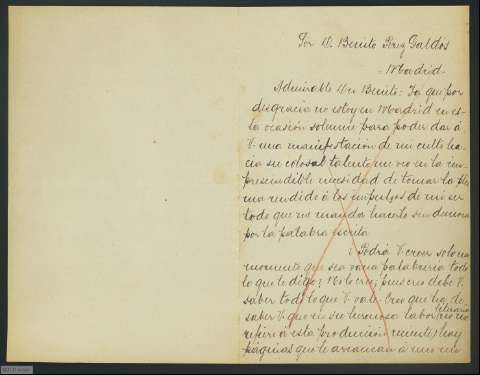 Sor D. Benito Perez Galdós
- Madrid -
Admirable Don Benito: Ya que por
desgracia no estoy en Madrid en es-
ta ocasión solemne para poder dar á
V. una manifestación de mi culto ha-
cia su colosal talento me veo en la im-
prescindible necesidad de tomar la plu-
ma rendido á los impulsos de mi ser
todo que me manda hacerlo sin demora
por la palabra escrita.
¿Podrá V. creer solo un
momento que sea vana palabrería todo
lo que le digo? No lo creo; pues creo debe V.
saber todo lo que V. vale. Creo que ha de
saber V. que en su luminosa labor literaria
(me refiero á esta producción reciente) hay
páginas que le arrancan á uno